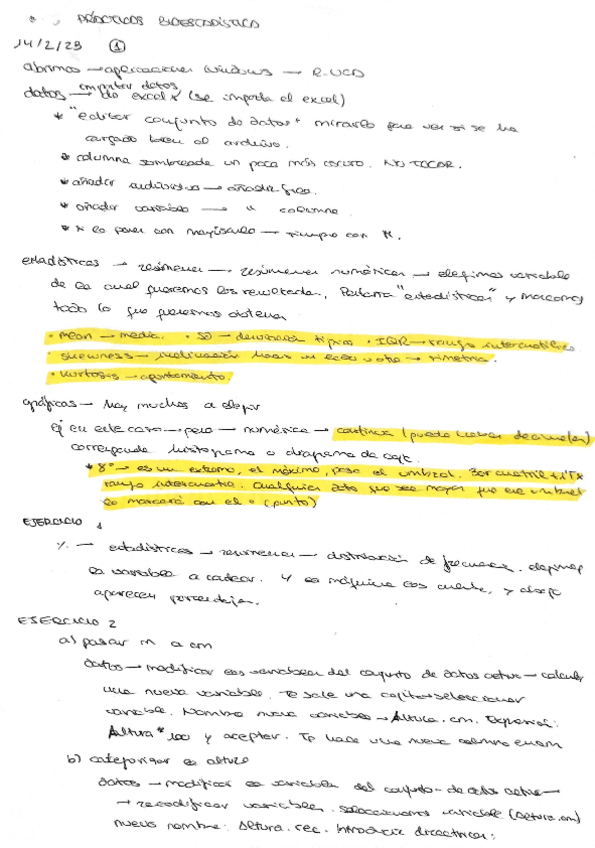 PRÁCTICAS BIOESTADÍSTICA
14/2/23 ①
abrimos → aplicaciones windows → R-UCA
datos → importar datos do excel x (se importa el excel)
* "editar conjunto de datos" mirarlo para ver si se ha
cargado bien el archivo.
* columna sombreada un poco más oscuro. NO TOCAR.
* añadir individuos → añadir fila.
* añadir variable → " columna.
* R lo pone con mayúscula → siempre con R.
estadísticos → resúmenes → resúmenes numéricos → elegimos variable
de la cual queremos los resultados, Pestaña "estadísticos" y marcamos
todo lo que queremos obtener
· mean → media. · SD → desviación típica · IQR → rango intercuartílico
· skewness → inclinación hacia un lado u otro → simetría.
· kurtosis → apuntamiento.
gráficas → hay muchos a elegir
ej en este caso → peso → numérica → continua (puede haber decimales)
corresponde histograma o diagrama de caja.
* 8° → es un extremo, el máximo, pasa el umbral. 3er cuartil +
rango intercuartil. Cualquier dato que sea mayor que ese umbral
lo marcará con el ° (punto)
EJERCICIO 1
% → estadísticos → resumenes → distribución de frecuencia.
la variable a Y la máquina los cuenta, y abajo
aparecen porcentajes.
EJERCICIO 2
a) pasar m a cm
datos → modificar las variables del conjunto de datos activo → calcular
una nueva variable. Te sale una cajita → seleccionar
variable. Nombre nueva variable → Altura.cm. Expresión:
Altura * 100 y aceptar. Te hace una nueva columna en cm
b) categorizar la altura
datos → modificar la variable del conjunto de datos activo →
→ recodificar variables. seleccionamos variable (altura.cm)
nuevo nombre: Altura.rec. Introducir directrices: